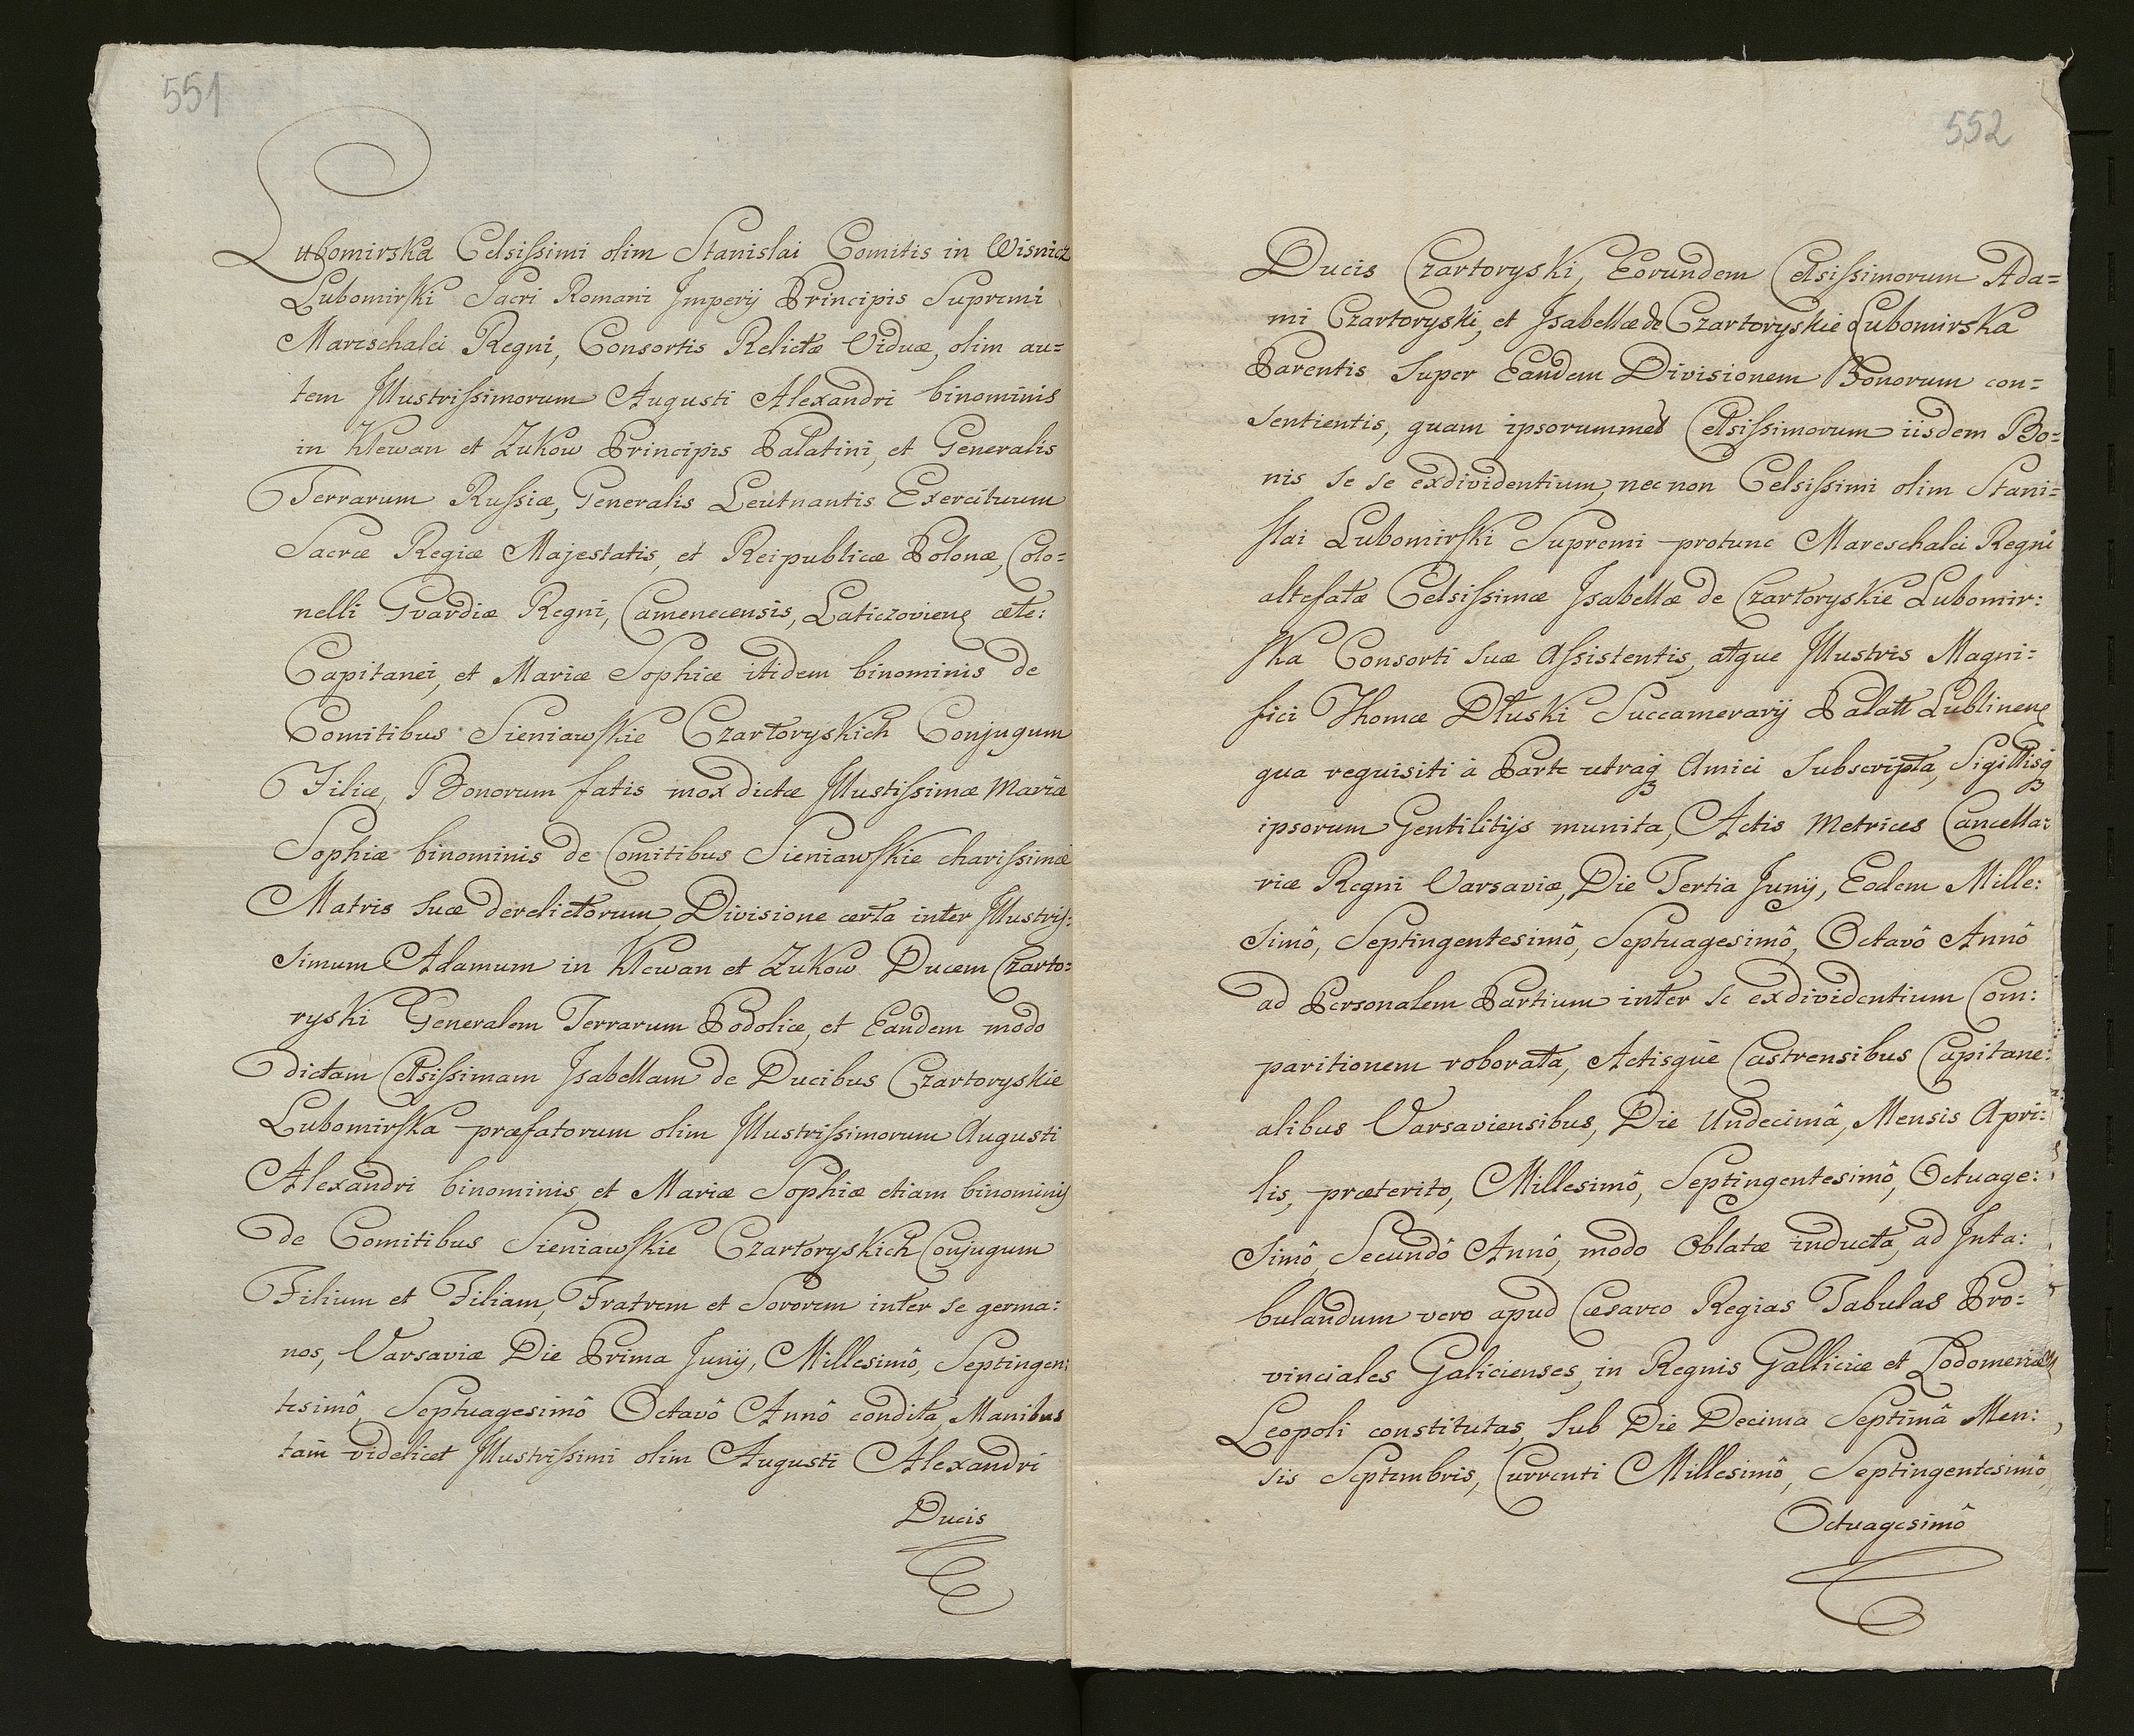 551
Lubomirska Celsissimi olim Stanislai Comitis in Wisnicz
Lubomirski Sacri Romani Imperij Principis Supremi
Mareschalci Regni, Consortis Relictæ Viduæ, olim au=
tem Illustrissimorum Augusti Alexandri binominis
in Klewan et Zukow Principis Palatini, et Generalis
Terrarum Russiæ, Generalis Leutnantis Exercituum
Sacræ Regiæ Majestatis, et Reipublicæ Polonæ, Colo=
nelli Gvardiæ Regni, Camenecensis, Laticzovien. ætc:
Capitanei, et Mariæ Sophiæ itidem binominis de
Comitibus Sieniawskie Czartoryskich Conjugum
Filiæ, Bonorum fatis mox dictæ Illustissimæ Mariæ
Sophiæ binominis de Comitibus Sieniawskie charissimæ
Matris suæ derelictorum, Divisione certa inter Illustris:
simum Adamum in Klewan et Zukow Ducem Czarto=
ryski Generalem Terrarum Podoliæ, et Eandem modo
dictam Celsissimam Isabellam de Ducibus Czartoryskie
Lubomirska præfatorum olim Illustrissimorum Augusti
Alexandri binominis, et Mariæ Sophiæ etiam binominis
de Comitibus Sieniawskie Czartoryskich Conjugum
Filium et Filiam, Fratrem et Sororem inter se germa:
nos, Varsaviæ Die Prima Junij, Millesimô, Septingen:
tesimô, Septuagesimô Octavô Annô condita, Manibus
tam videlicet Illustrissimi olim Augusti Alexandri
Ducis
552
Ducis Czartoryski, Eorundem Celsissimorum Ada=
mi Czartoryski, et Isabellæ de Czartoryskie Lubomirska
Parentis super Eandem Divisionem Bonorum con=
sentientis, quam ipsorummet Celsissimorum iisdem Bo=
nis se se exdividentium, nec non Celsissimi olim Stani=
slai Lubomirski Supremi protunc Mareschalci Regni
altefatæ Celsissimæ Isabellæ de Czartoryskie Lubomir:
ska Consorti suæ Assistentis, atque Illustris Magni:
fici Thomæ Dłuski Succamerarij Palatt Lublinen.
qua requisiti à Parte utraq Amici subscripta, Sigillisq
ipsorum Gentilitijs munita, Actis Metrices Cancella:
riæ Regni Varsaviæ, Die Tertia Junij, Eodem Mille:
simô, Septingentesimô, Septuagesimô, Octavô Annô
ad Personalem Partium inter se exdividentium Com:
paritionem roborata, Actisque Castrensibus Capitane:
alibus Varsaviensibus, Die Undecimâ, Mensis Apri:
lis, præterito, Millesimô, Septingentesimô, Octuage:
simô, Secundô Annô, modo Oblatæ inducta, ad Inta:
bulandum vero apud Cæsareo Regias Tabulas Pro:
vinciales Galicienses, in Regnis Galliciæ et Lodomeriæ
Leopoli constitutas, sub Die Decima Septimâ Men:
sis Septembris, Currenti Millesimô, Septingentesimô,
Octuagesimô